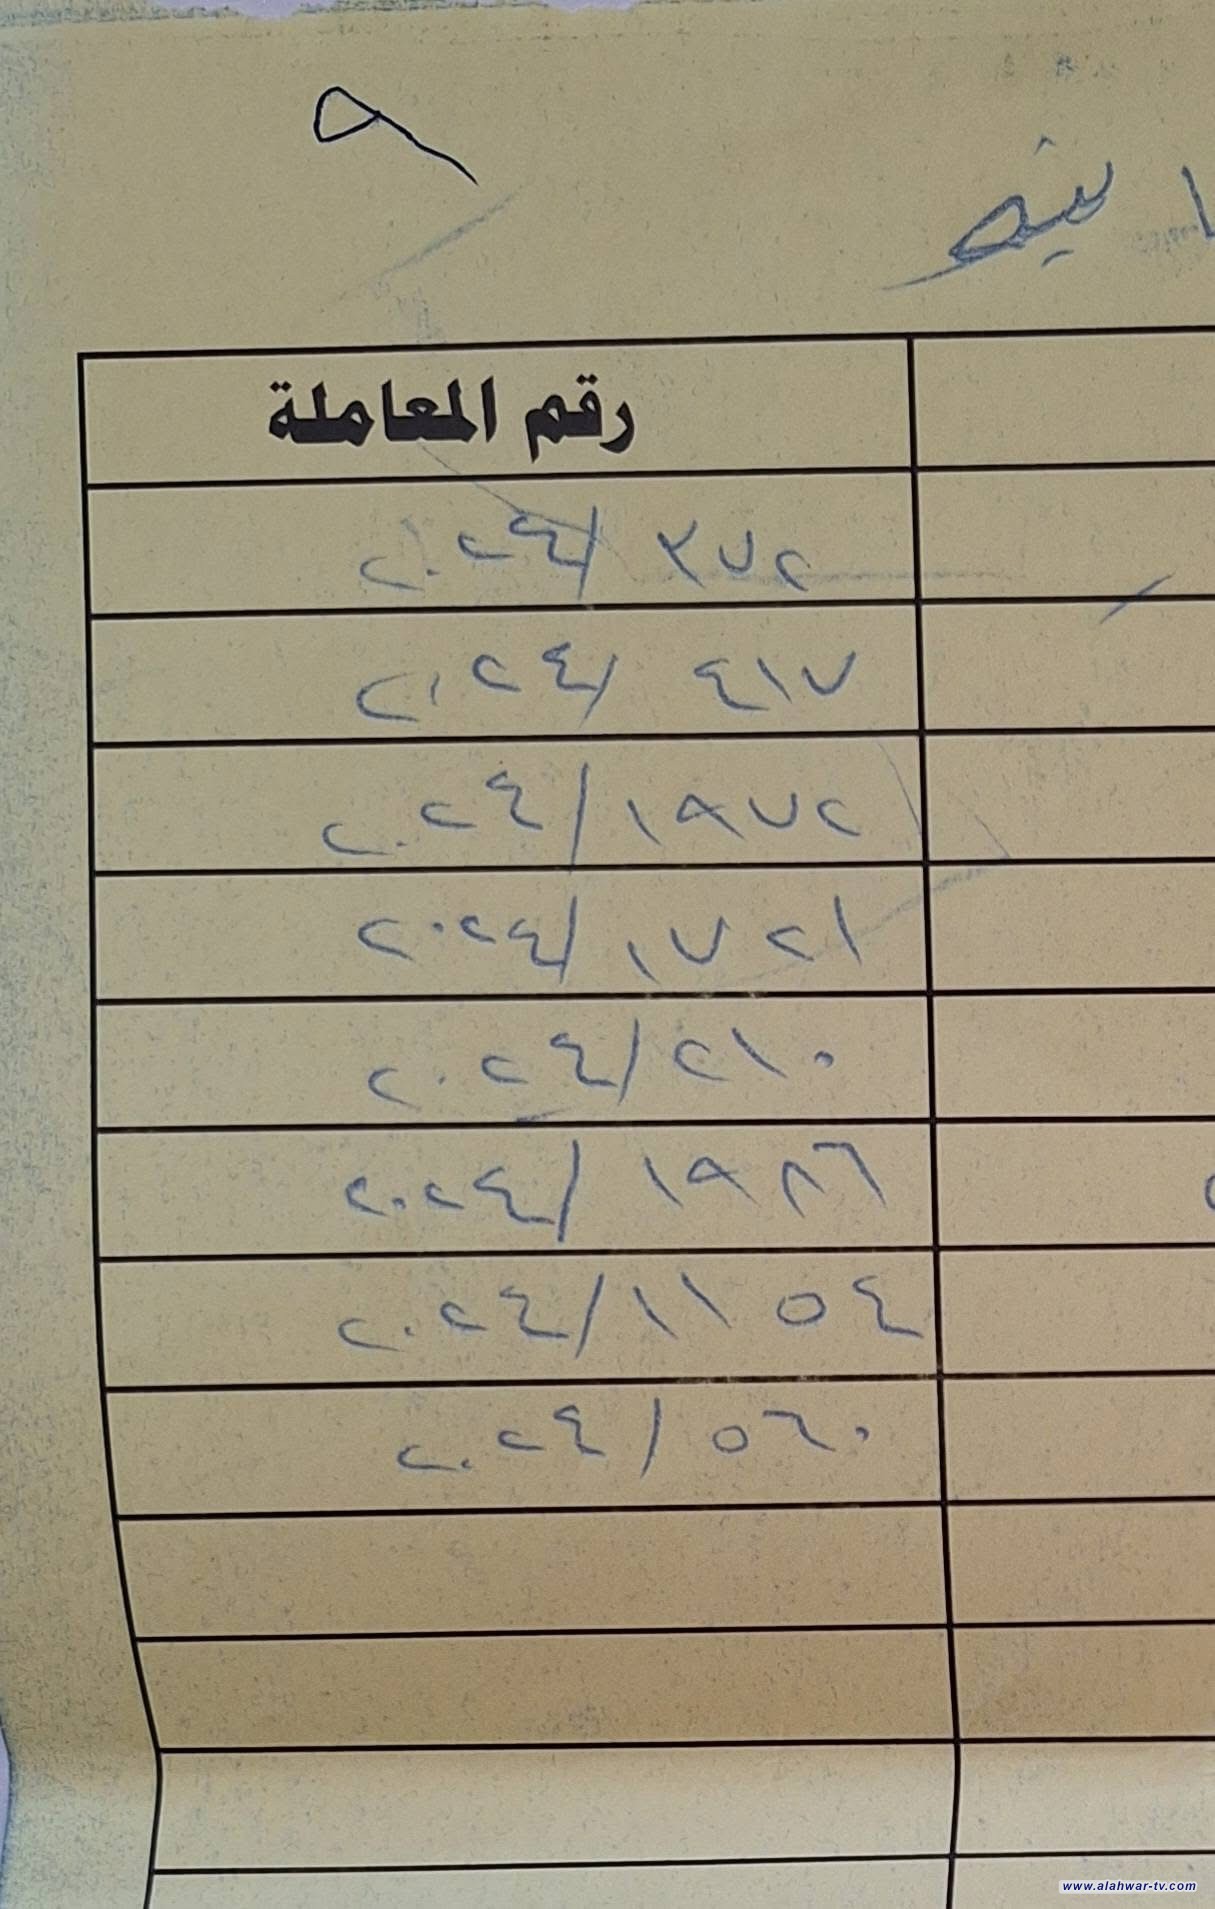 ٩
رقم المعاملة
٢٠٢٤/ ٣٧٢
٢٠٢٤/ ٤١٧
٢٠٢٤/١٩٧٢
٢٠٢٤/١٧٢١
٢٠٢٤/٢١٠
٢٠٢٤/١٩٨٦
٢٠٢٤/١١٥٤
٢٠٢٤/٥٦٠
www.alahwar-tv.com